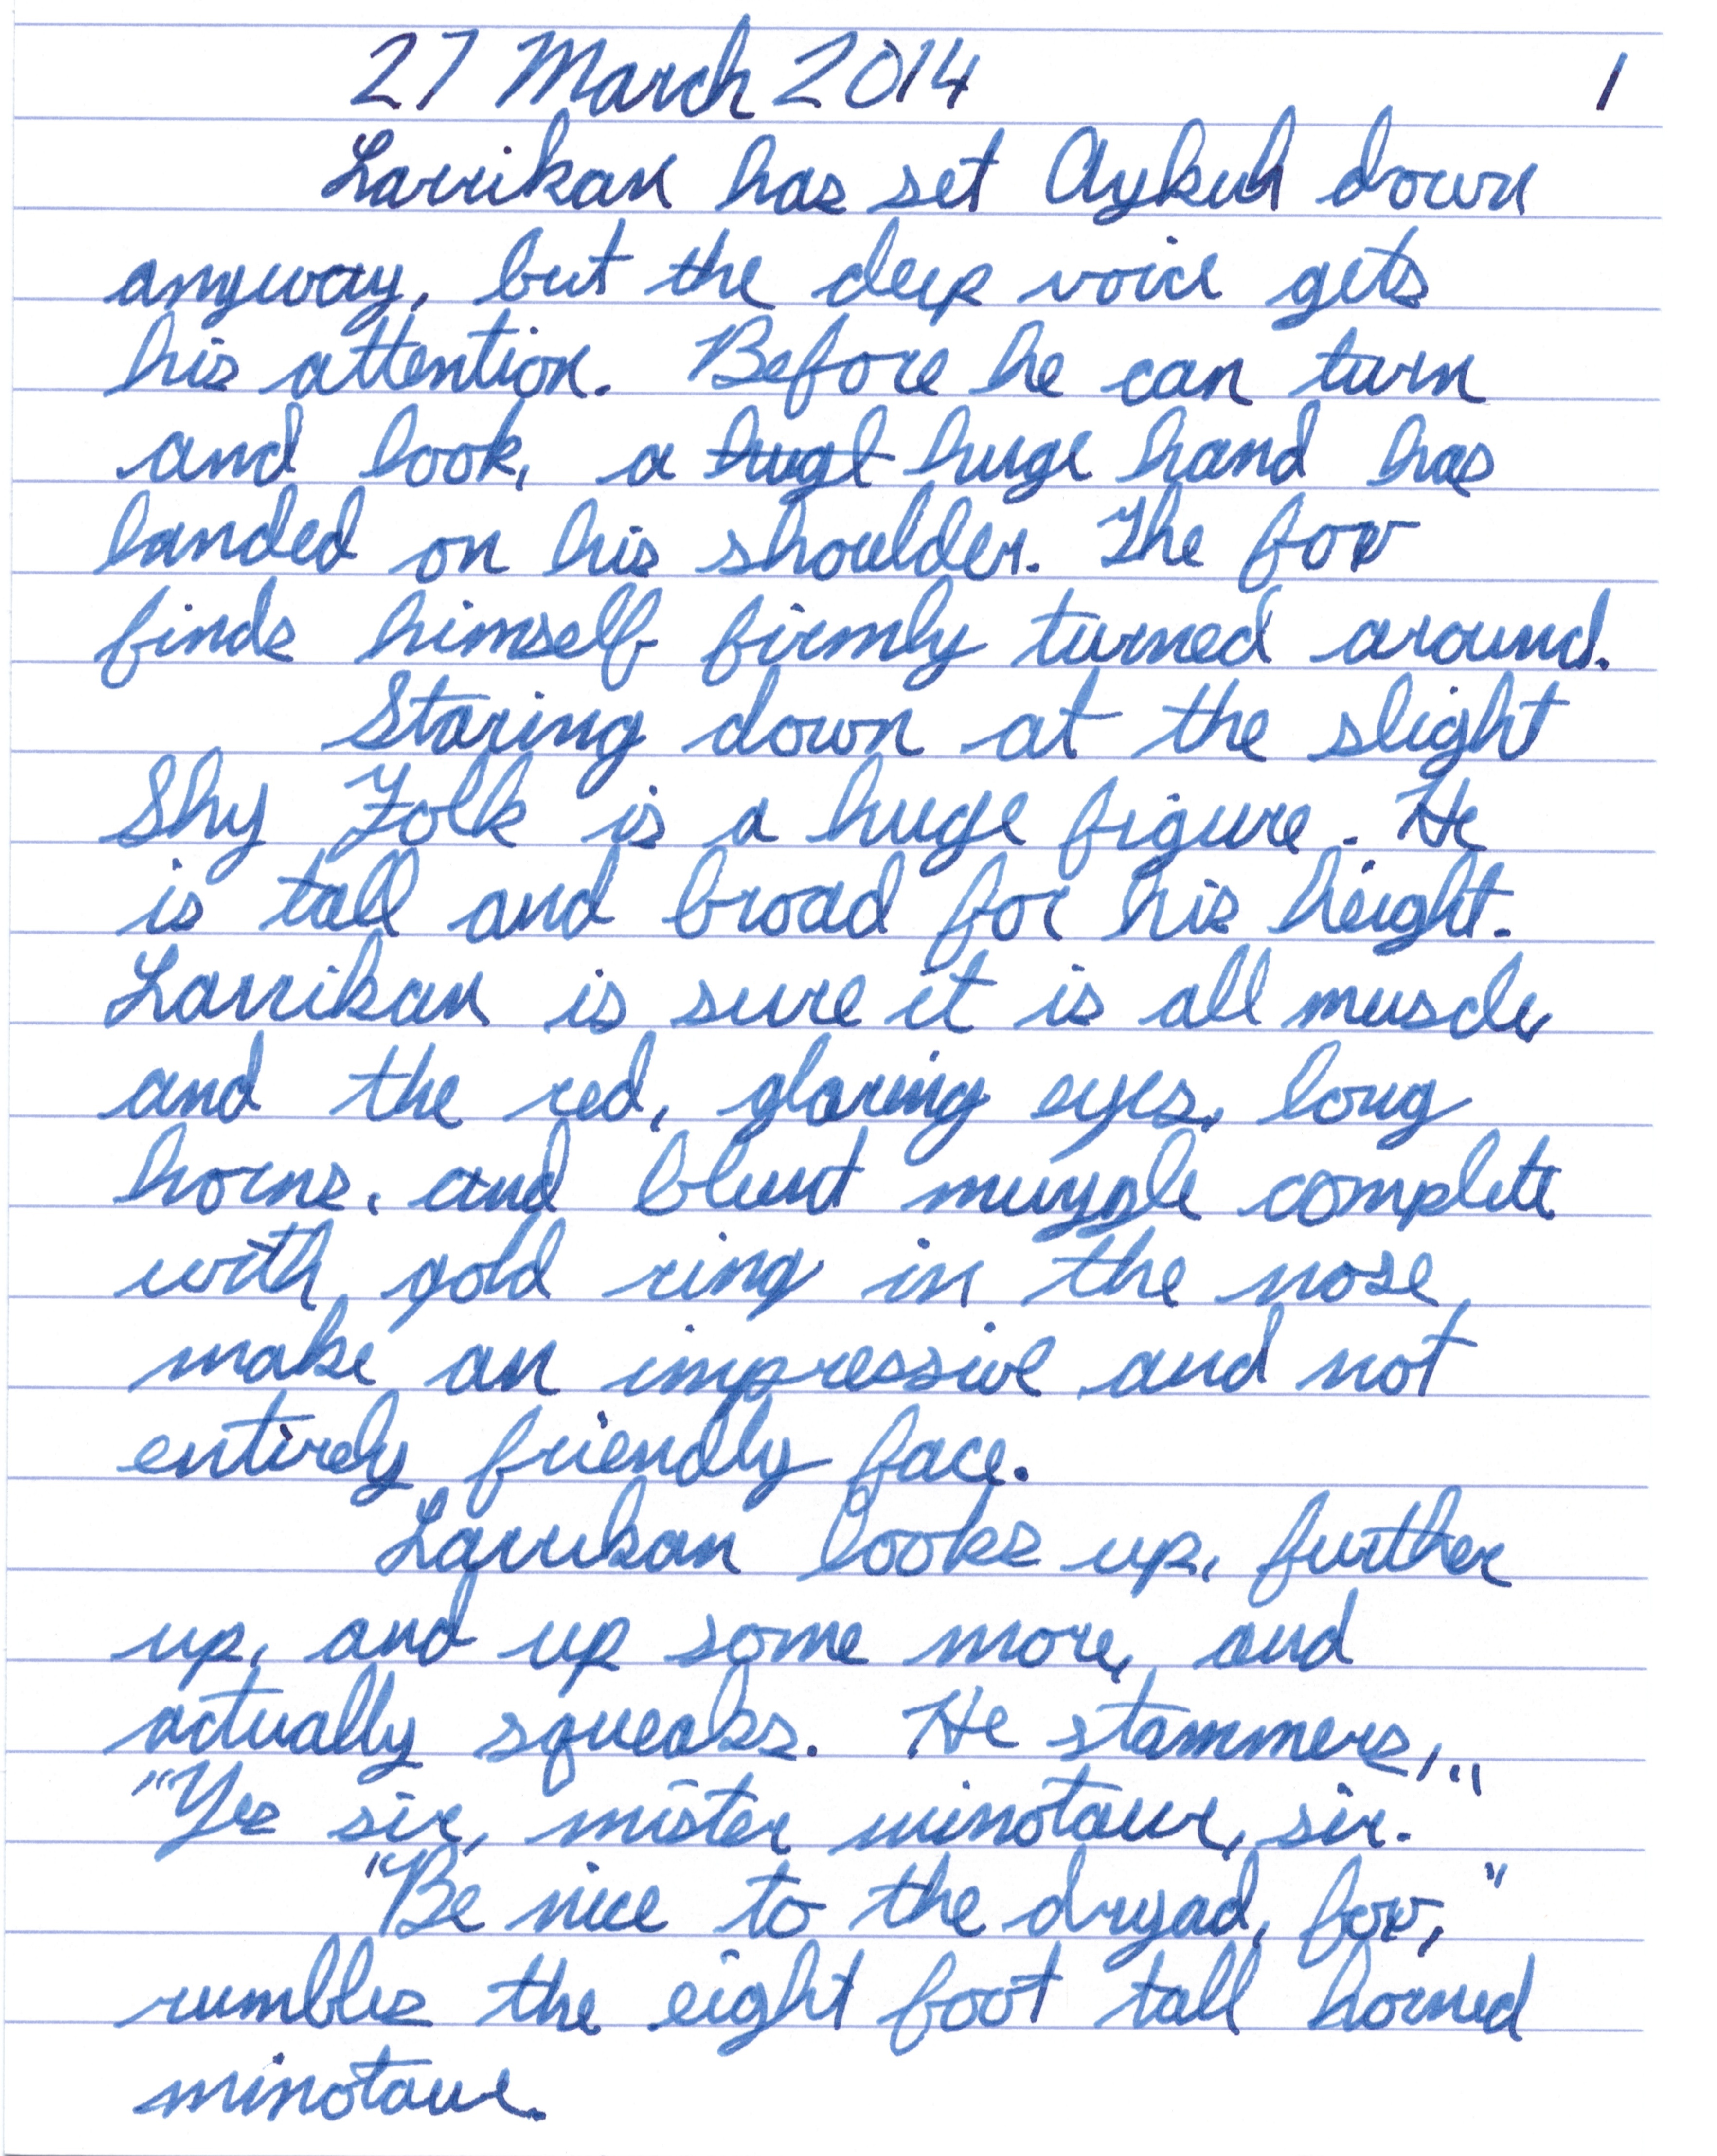 27 March 2014 1
Larrikan has set Aykuh down
anyway, but the deep voice gets
his attention. Before he can turn
and look, a hugl huge hand has
landed on his shoulder. The fox
finds himself firmly turned around.
Staring down at the slight
Shy Folk is a huge figure. He
is tall and broad for his height.
Larrikan is sure it is all muscle,
and the red, glaring eyes, long
horns, and blunt muzzle complete
with gold ring in the nose,
make an impressive and not
entirely friendly face.
Larrikan looks up, further
up, and up some more, and
actually squeaks. He stammers,
"Yes sir, mister minotaur, sir."
"Be nice to the dryad, fox,"
rumbles the eight foot tall horned
minotaur.